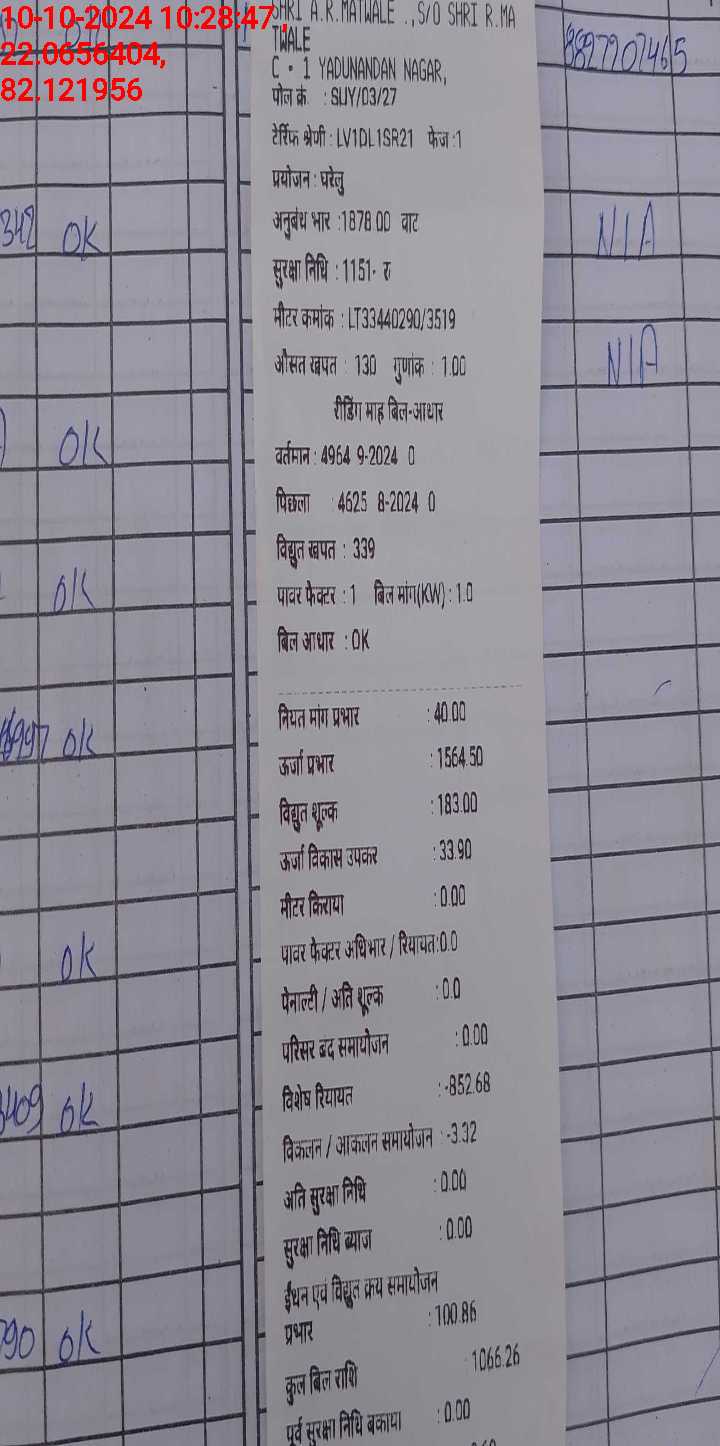 10-10-2024 10:28:47
22.0656404,
82.121956
SHRI A.R.MATWALE .,S/O SHRI R.MA
TWALE
C - 1 YADUNANDAN NAGAR,
पोल क्रं. : SUY/03/27
टेर्रिफ श्रेणी : LV1DL1SR21 फेज :1
प्रयोजन : घरेलु
अनुबंध भार :1878.00 वाट
सुरक्षा निधि : 1151- रु
मीटर कमांक : LT33440290/3519
औसत खपत : 130 गुणांक : 1.00
रीडिंग माह बिल-आधार
वर्तमान : 4964 9-2024 0
पिछला : 4625 8-2024 0
विद्युत खपत : 339
पावर फेक्टर : 1 बिल मांग(KW) : 1.0
बिल आधार : OK
नियत मांग प्रभार : 40.00
ऊर्जा प्रभार : 1564.50
विद्युत शूल्क : 183.00
ऊर्जा विकास उपकर : 33.90
मीटर किराया : 0.00
पावर फेक्टर अधिभार / रियायत:0.0
पेनाल्टी / अति शूल्क : 0.0
परिसर बंद समायोजन : 0.00
विशेष रियायत : -852.68
विकलन / आकलन समायोजन : -3.32
अति सुरक्षा निधि : 0.00
सुरक्षा निधि ब्याज : 0.00
ईंधन एवं विद्युत क्रय समायोजन
प्रभार : 100.86
कुल बिल राशि 1066.26
पूर्व सुरक्षा निधि बकाया : 0.00
342 OK
OK
OK
OK
OK
3409 OK
790 OK
8827207465
N/A
N/A